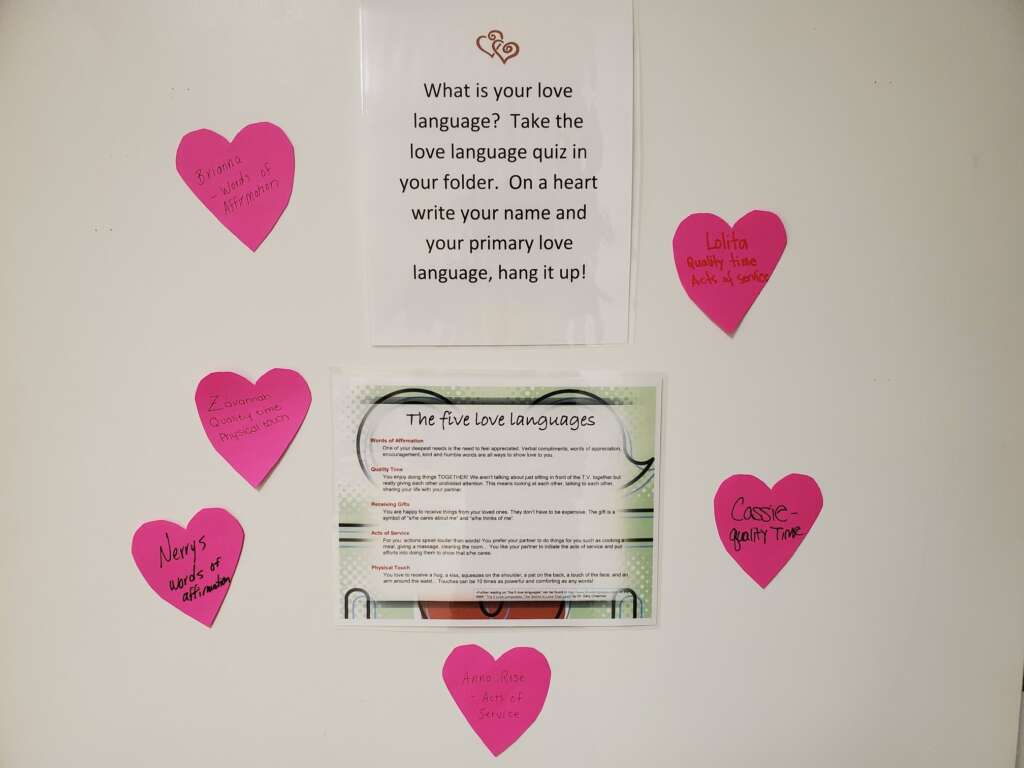 What is your love
language? Take the
love language quiz in
your folder. On a heart
write your name and
your primary love
language, hang it up!
Brianna
- Words of
Affirmation
Lolita
Quality time
Acts of service
Zavannah
Quality time
Physical touch
The five love languages
Words of Affirmation
One of your deepest needs is the need to feel appreciated. Verbal compliments, words of appreciation,
encouragement, kind and humble words are all ways to show love to you.
Quality Time
You enjoy doing things TOGETHER! We aren't talking about just sitting in front of the T.V. together but
really giving each other undivided attention. This means looking at each other, talking to each other,
sharing your life with your partner.
Receiving Gifts
You are happy to receive things from your loved ones. They don't have to be expensive. The gift is a
symbol of "s/he cares about me" and "s/he thinks of me".
Acts of Service
For you, actions speak louder than words! You prefer your partner to do things for you such as cooking a
meal, giving a massage, cleaning the room... You like your partner to initiate the acts of service and put
efforts into doing them to show that s/he cares.
Physical Touch
You love to receive a hug, a kiss, squeezes on the shoulder, a pat on the back, a touch of the face, and an
arm around the waist... Touches can be 10 times as powerful and comforting as any words!
Cassie -
quality Time
Nerrys
words of
affirmation
Anna Rise
- Acts of
Service